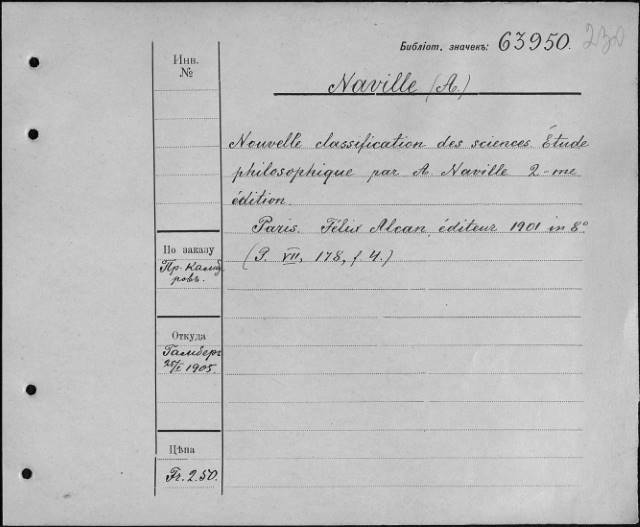 Библіот. значекъ: 63950. 230
Инв.
№
Naville (A.)
Nouvelle classification des sciences. Étude
philosophique par A. Naville 2-me
édition.
Paris. Félix Alcan, éditeur 1901 in 8°
(P. VII, 178, f 4.)
По заказу
Пр.
ровъ.
Откуда
Гамберъ
25/I 1905.
Цѣна
Fr. 2.50.